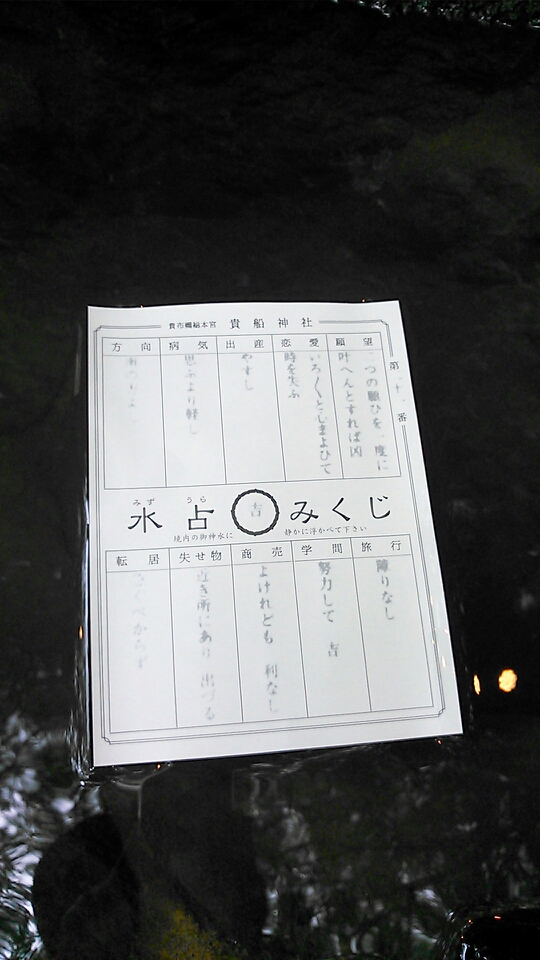 貴船神社
第
番
願望
二つの願ひを一度に
叶へんとすれば凶
恋愛
いろ〳〵としまよひて
時を失ふ
出産
やすし
病気
思ふより軽し
方向
水占みくじ
みず うら
吉
境内の御神水に
静かに浮かべて下さい
旅行
障りなし
学問
努力して 吉
商売
よけれども 利なし
失せ物
近き所にあり 出づる
転居